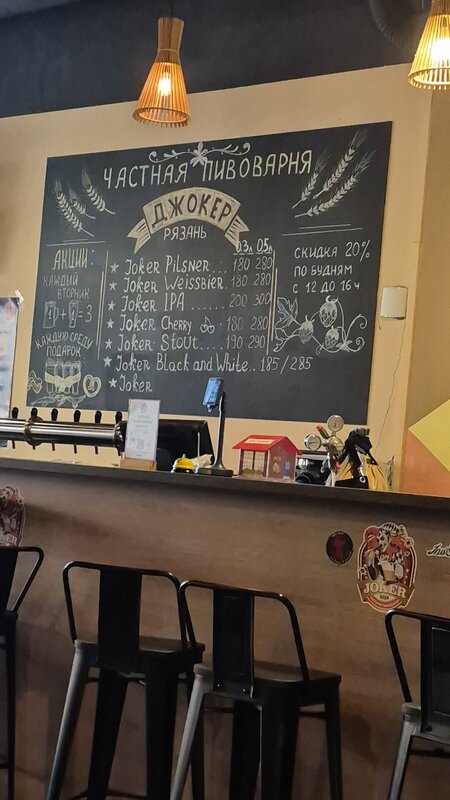 ЧАСТНАЯ ПИВОВАРНЯ
ДЖОКЕР
РЯЗАНЬ
АКЦИИ:
КАЖДЫЙ
ВТОРНИК
1+ =3
КАЖДУЮ СРЕДУ
ПОДАРОК
0.3л 0.5л
Joker Pilsner... 180 280
Joker Weissbier. 180 280
Joker IPA ....... 200 300
Joker Cherry 180 280
Joker Stout.... 190 290
Joker Black and White.. 185/285
Joker
СКИДКА 20%
ПО БУДНЯМ
С 12 ДО 16 ч
JOKER